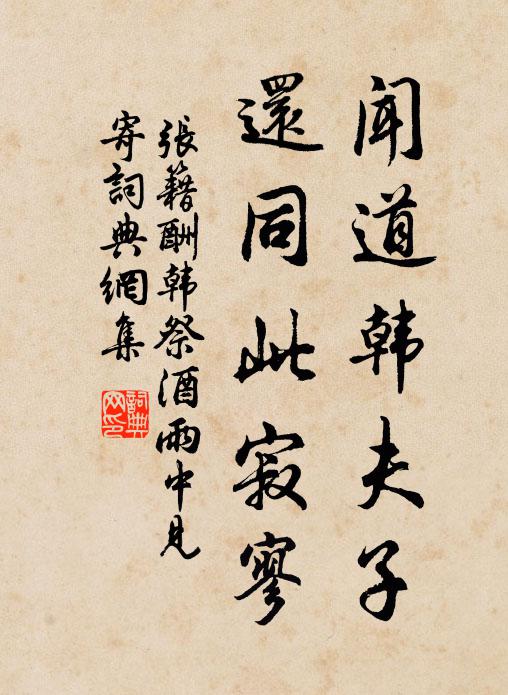 闻道韩夫子
還同此寂寥
張籍酬韩祭酒雨中見
寄詞典網集
詞典網印